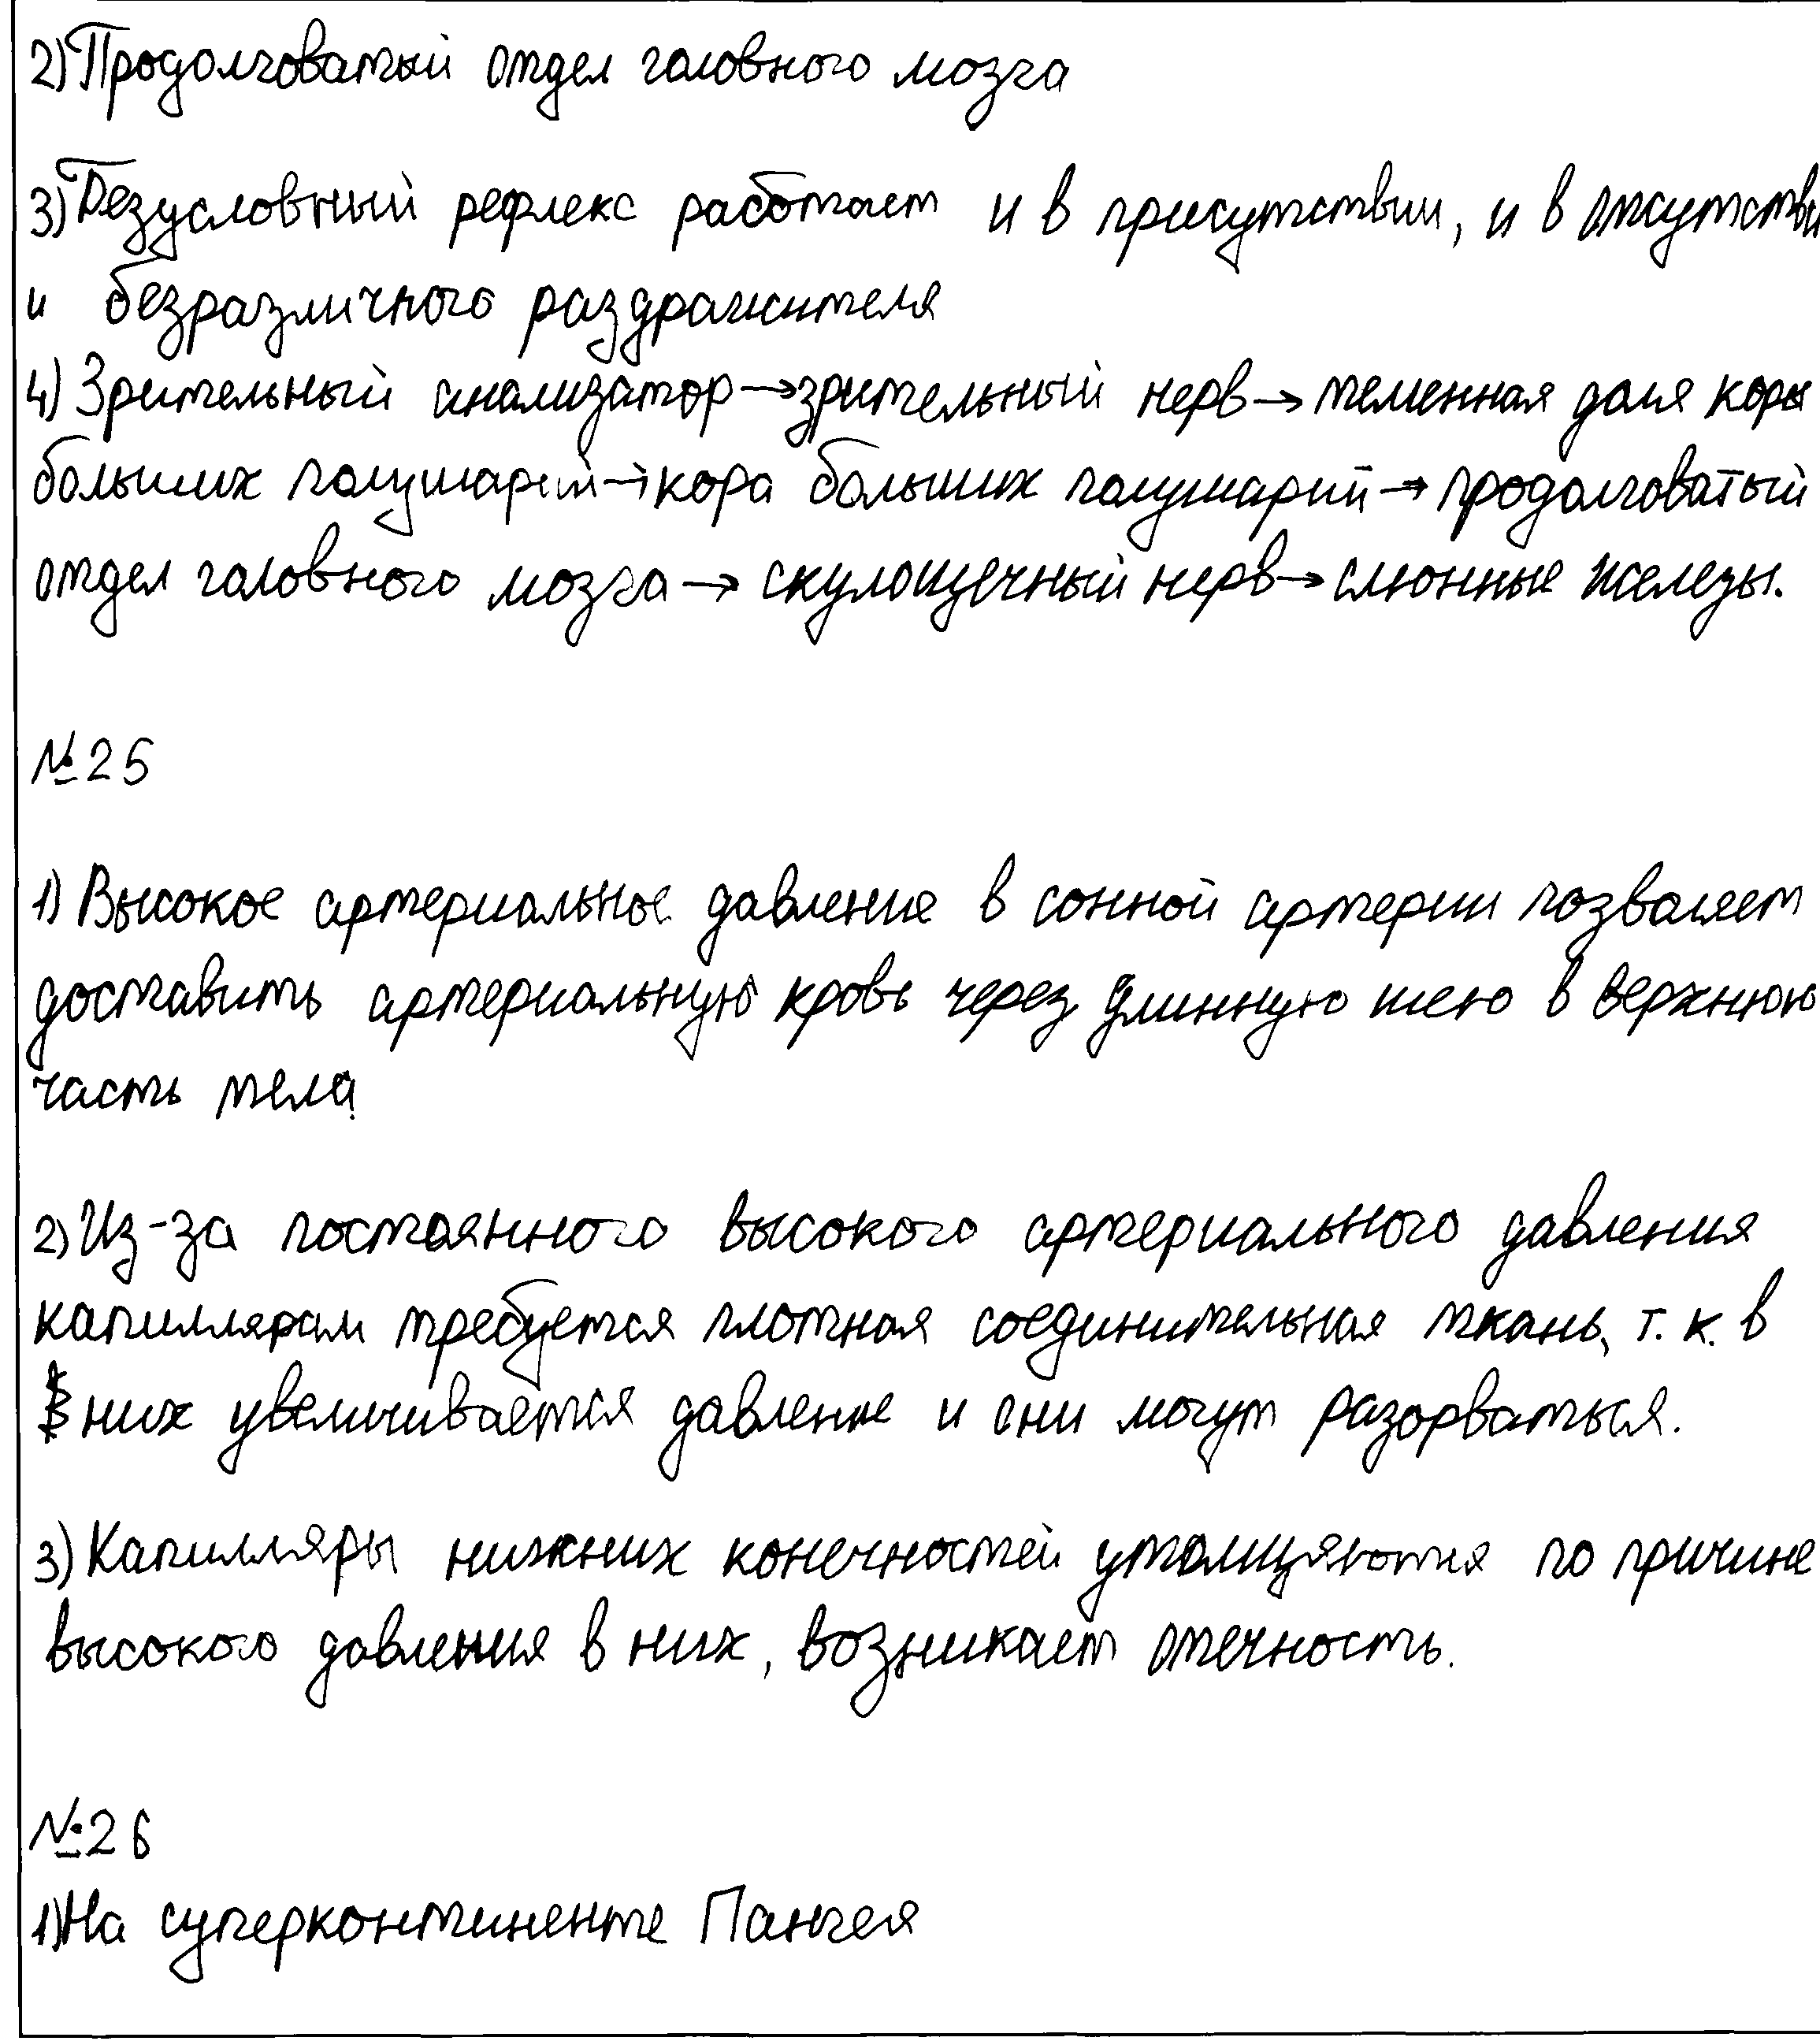 2) Продолговатый отдел головного мозга
3) Безусловный рефлекс работает и в присутствии, и в отсутстви
и безразличного раздражителя
4) Зрительный анализатор→зрительный нерв→теменная доля коры
больших полушарий→кора больших полушарий→продолговатый
отдел головного мозга→скулощечный нерв→слюнные железы.
№25
1) Высокое артериальное давление в сонной артерии позволяет
доставить артериальную кровь через длинную шею в верхнюю
часть тела
2) Из-за постоянного высокого артериального давления
капиллярам требуется плотная соединительная ткань, т. к. в
них увеличивается давление и они могут разорваться.
3) Капилляры нижних конечностей утолщяются по причине
высокого давления в них, возникает отечность.
№26
1) На суперконтиненте Пангея